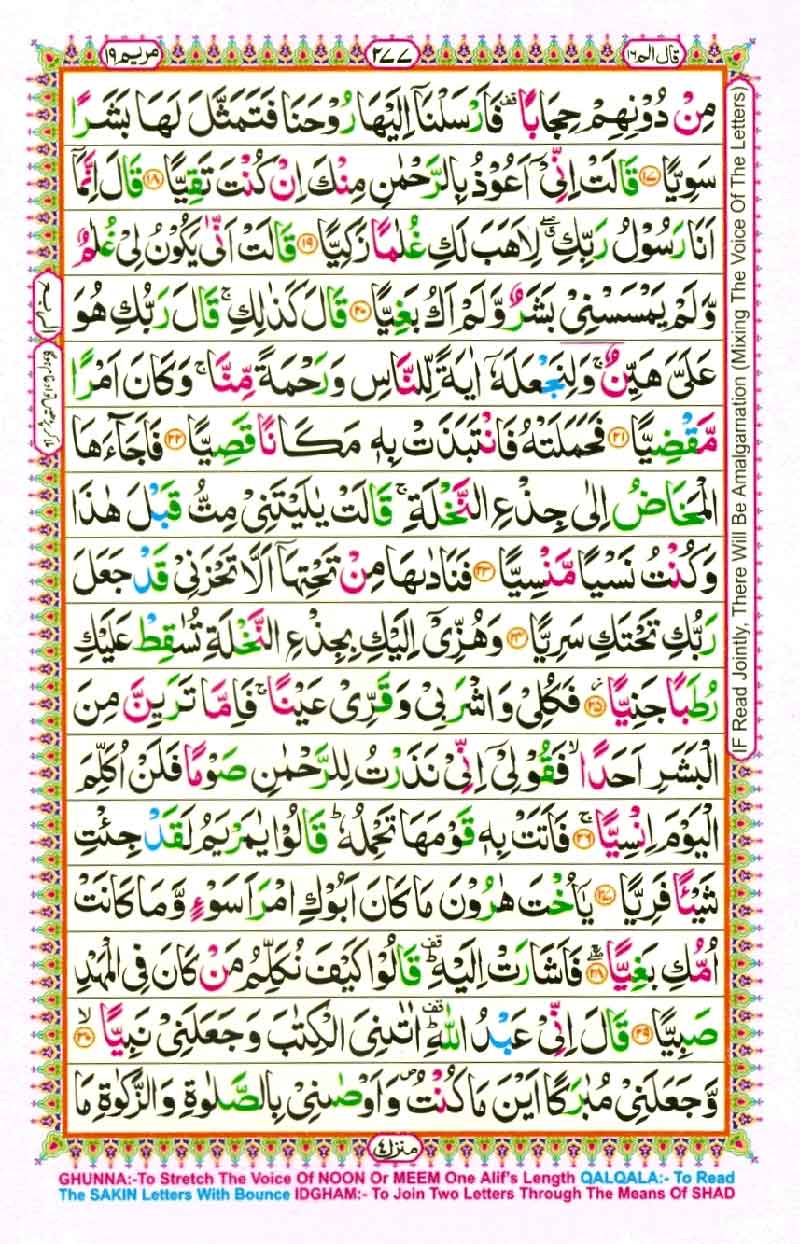 مريم ١٩
٢٧٧
قال الم ١٦
مِنْ دُوْنِهِمْ حِجَابًا ۪۫ فَاَرْسَلْنَاۤ اِلَیْهَا رُوْحَنَا فَتَمَثَّلَ لَهَا بَشَرًا
سَوِیًّا ﴿۱۷﴾ قَالَتْ اِنِّیْۤ اَعُوْذُ بِالرَّحْمٰنِ مِنْكَ اِنْ كُنْتَ تَقِیًّا ﴿۱۸﴾ قَالَ اِنَّمَاۤ
اَنَا رَسُوْلُ رَبِّكِ ۖۗ لِاَهَبَ لَكِ غُلٰمًا زَكِیًّا ﴿۱۹﴾ قَالَتْ اَنّٰی یَكُوْنُ لِیْ غُلٰمٌ
وَّ لَمْ یَمْسَسْنِیْ بَشَرٌ وَّ لَمْ اَكُ بَغِیًّا ﴿۲۰﴾ قَالَ كَذٰلِكِ ۚ قَالَ رَبُّكِ هُوَ
عَلَیَّ هَیِّنٌ ۚ وَ لِنَجْعَلَهٗۤ اٰیَةً لِّلنَّاسِ وَ رَحْمَةً مِّنَّا ۚ وَ كَانَ اَمْرًا
مَّقْضِیًّا ﴿۲۱﴾ فَحَمَلَتْهُ فَانْتَبَذَتْ بِهٖ مَكَانًا قَصِیًّا ﴿۲۲﴾ فَاَجَآءَهَا
الْمَخَاضُ اِلٰی جِذْعِ النَّخْلَةِ ۚ قَالَتْ یٰلَیْتَنِیْ مِتُّ قَبْلَ هٰذَا
وَ كُنْتُ نَسْیًا مَّنْسِیًّا ﴿۲۳﴾ فَنَادٰىهَا مِنْ تَحْتِهَاۤ اَلَّا تَحْزَنِیْ قَدْ جَعَلَ
رَبُّكِ تَحْتَكِ سَرِیًّا ﴿۲۴﴾ وَ هُزِّیْۤ اِلَیْكِ بِجِذْعِ النَّخْلَةِ تُسٰقِطْ عَلَیْكِ
رُطَبًا جَنِیًّا ﴿۲۵﴾ فَكُلِیْ وَ اشْرَبِیْ وَ قَرِّیْ عَیْنًا ۚ فَاِمَّا تَرَیِنَّ مِنَ
الْبَشَرِ اَحَدًا ۙ فَقُوْلِیْۤ اِنِّیْ نَذَرْتُ لِلرَّحْمٰنِ صَوْمًا فَلَنْ اُكَلِّمَ
الْیَوْمَ اِنْسِیًّا ﴿۲۶﴾ فَاَتَتْ بِهٖ قَوْمَهَا تَحْمِلُهٗ ؕ قَالُوْا یٰمَرْیَمُ لَقَدْ جِئْتِ
شَیْـًٔا فَرِیًّا ﴿۲۷﴾ یٰۤاُخْتَ هٰرُوْنَ مَا كَانَ اَبُوْكِ امْرَاَ سَوْءٍ وَّ مَا كَانَتْ
اُمُّكِ بَغِیًّا ﴿۲۸﴾ فَاَشَارَتْ اِلَیْهِ ؕ۫ قَالُوْا كَیْفَ نُكَلِّمُ مَنْ كَانَ فِی الْمَهْدِ
صَبِیًّا ﴿۲۹﴾ قَالَ اِنِّیْ عَبْدُ اللّٰهِ ؕ۫ اٰتٰىنِیَ الْكِتٰبَ وَ جَعَلَنِیْ نَبِیًّا ﴿۳۰﴾ۙ
وَّ جَعَلَنِیْ مُبٰرَكًا اَیْنَ مَا كُنْتُ ۪ وَ اَوْصٰنِیْ بِالصَّلٰوةِ وَ الزَّكٰوةِ مَا
IF Read Jointly, There Will Be Amalgamation (Mixing The Voice Of The Letters)
منزل ٤
GHUNNA:-To Stretch The Voice Of NOON Or MEEM One Alif's Length QALQALA:- To Read
The SAKIN Letters With Bounce IDGHAM:- To Join Two Letters Through The Means Of SHAD